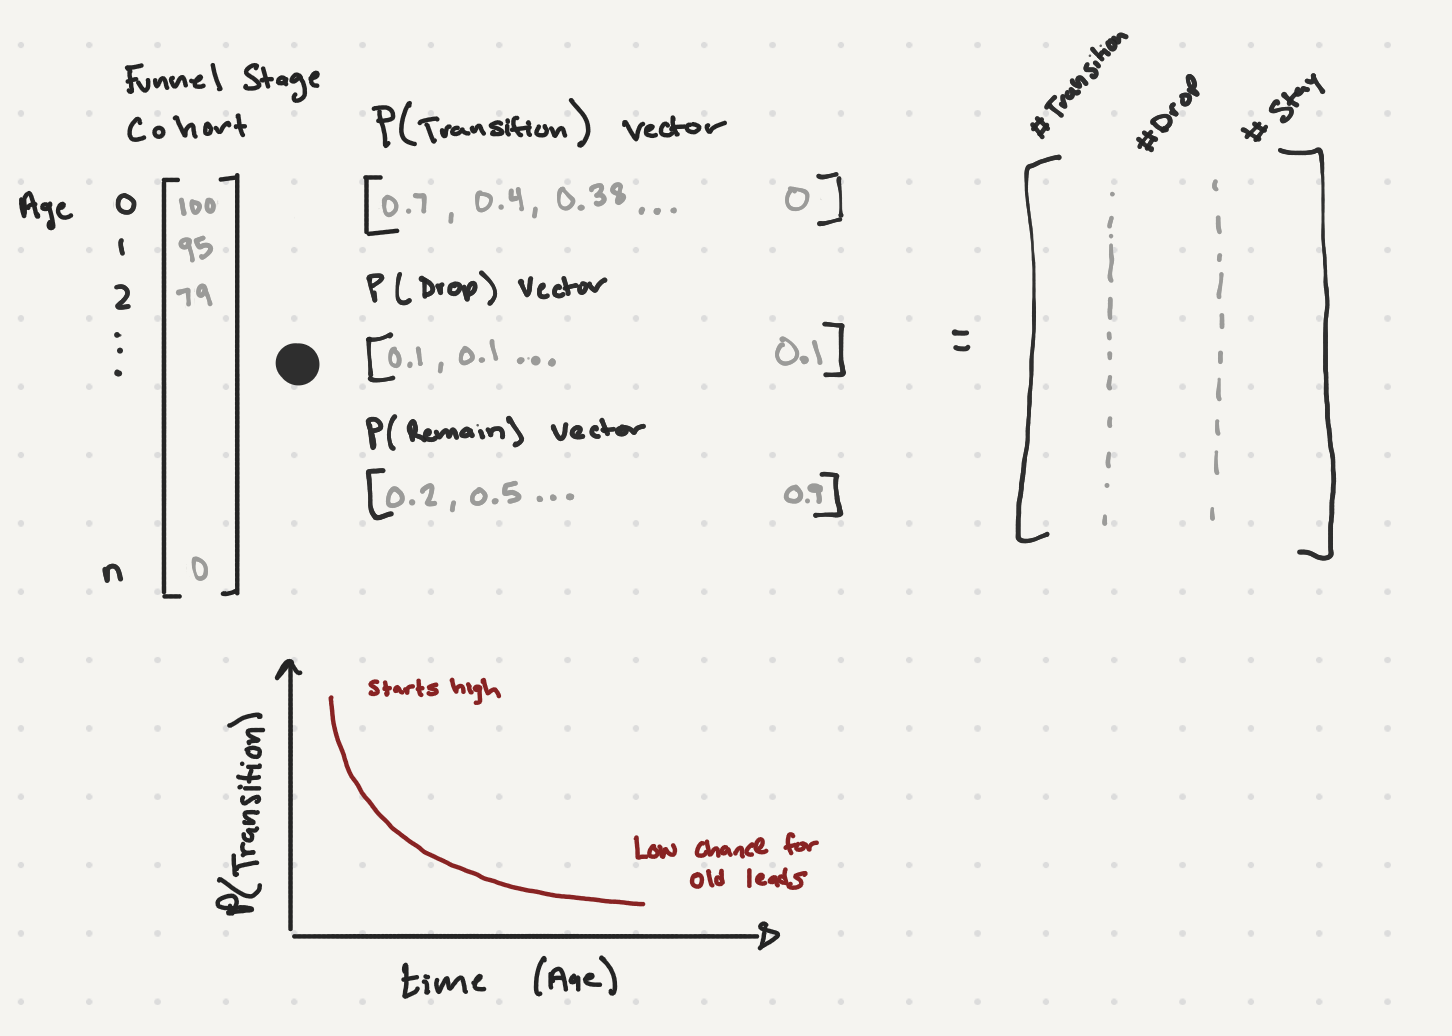 Funnel Stage
Cohort
P(Transition) vector
# Transition
# Drop
# Stay
Age 0
1
2
⋮
n
100
95
79
0
[0.7, 0.4, 0.38 ... 0]
P(Drop) vector
[0.1, 0.1 ... 0.1]
=
P(Remain) vector
[0.2, 0.5 ... 0.9]
P(Transition)
Starts high
Low chance for
old leads
time (Age)